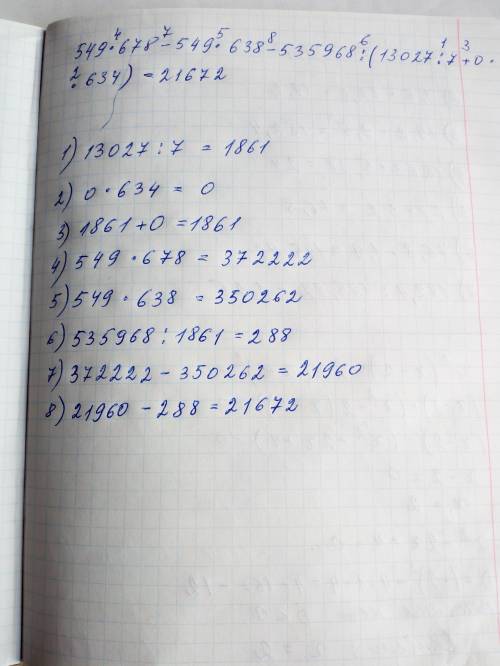 549·678-549·638-535968:(13027:7+0·
·634)=21672
1) 13027:7 = 1861
2) 0·634 = 0
3) 1861+0=1861
4) 549·678=372222
5) 549·638=350262
6) 535968:1861=288
7) 372222-350262=21960
8) 21960-288=21672